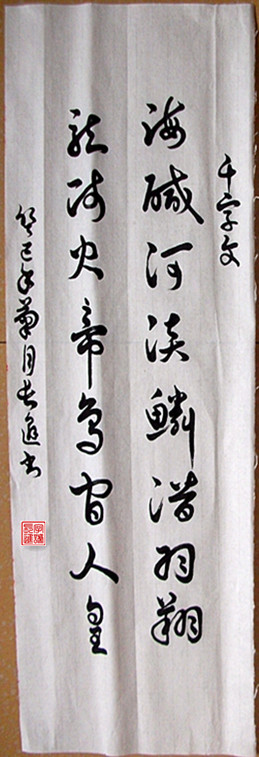 千字文
海鹹河淡鱗潛羽翔
龍師火帝鳥官人皇
癸巳年菊月長進書